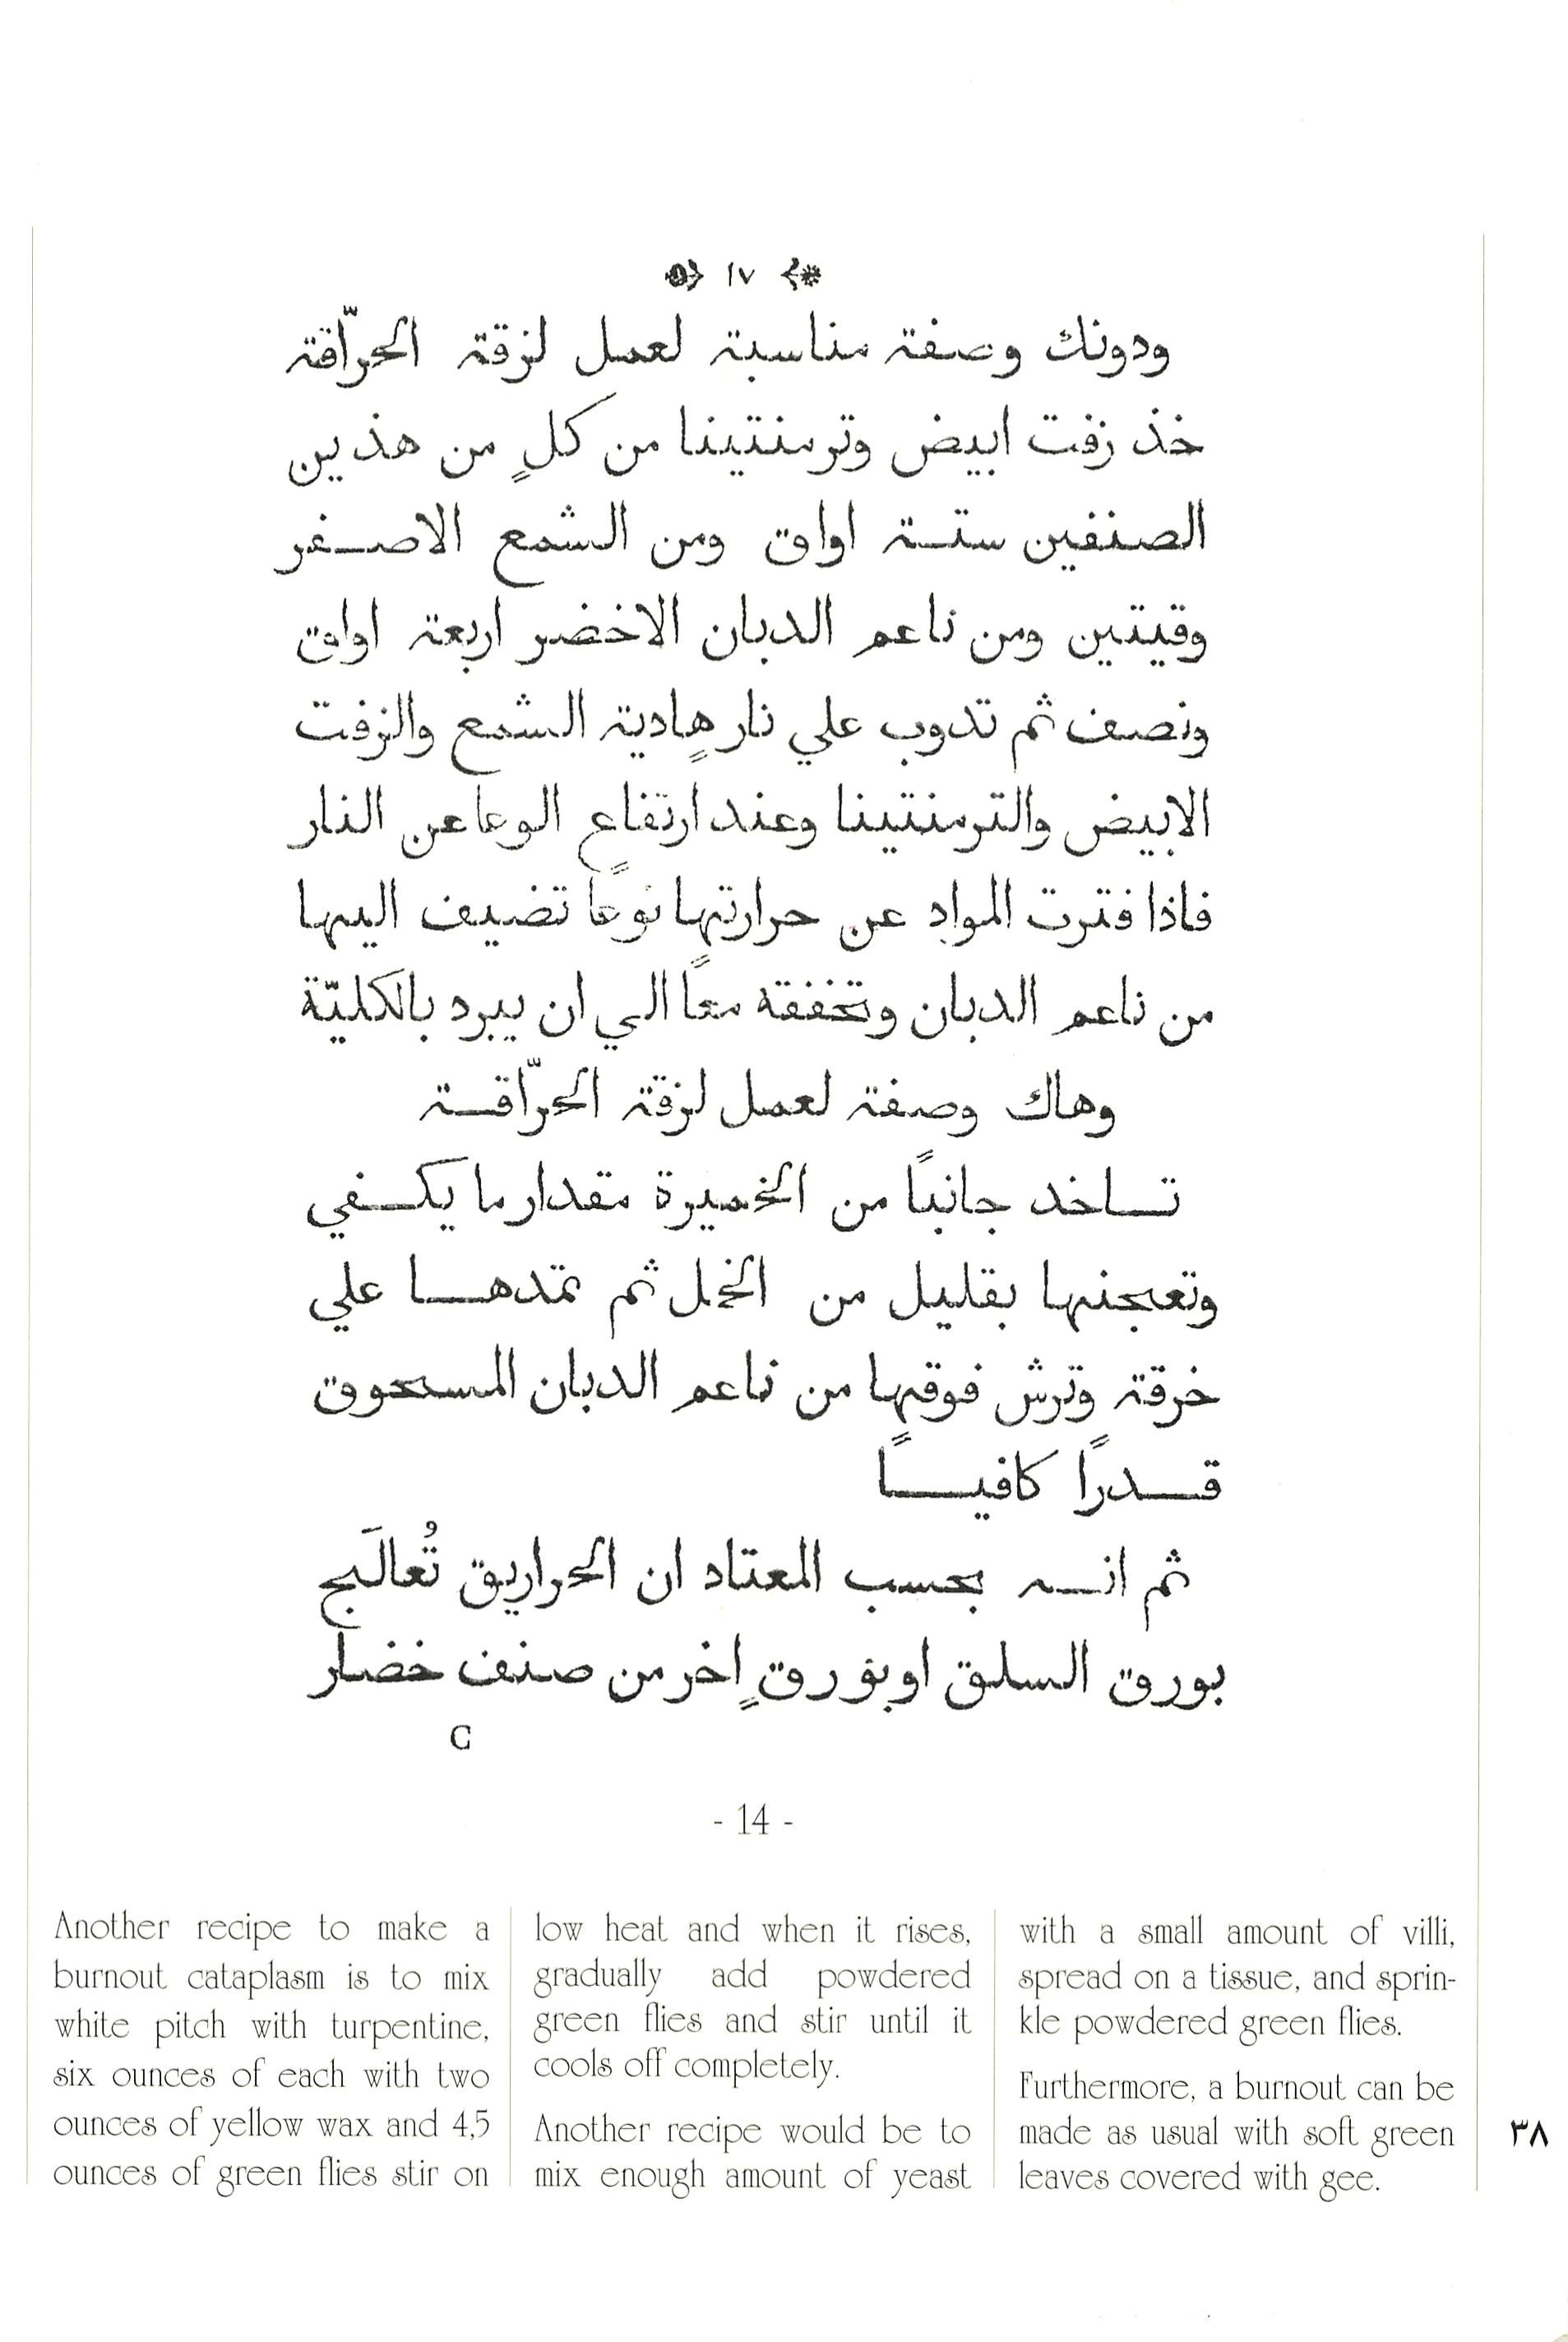 ١٧
ودونك وصفة مناسبة لعمل لزقة الحرّاقة
خذ زفت ابيض وترمنتينا من كلٍ من هذين
الصنفين ستة اواق ومن الشمع الاصفر
وقيتين ومن ناعم الدبان الاخضر اربعة اواق
ونصف ثم تدوب علي نار هادية الشمع والزفت
الابيض والترمنتينا وعند ارتفاع الوعا عن النار
فاذا فترت المواد عن حرارتها نوعًا تضيف اليها
من ناعم الدبان وتخففقه معًا الي ان يبرد بالكليّة
وهاك وصفة لعمل لزقة الحرّاقة
تاخد جانبًا من الخميرة مقدار ما يكفي
وتعجنها بقليل من الخل ثم تمدها علي
خرقة وترش فوقها من ناعم الدبان المسحوق
قدرًا كافيًا
ثم انه بحسب المعتاد ان الحراريق تُعالَج
بورق السلق او بورقٍ اخر من صنف خضار
C
- 14 -
Another recipe to make a
burnout cataplasm is to mix
white pitch with turpentine,
six ounces of each with two
ounces of yellow wax and 4,5
ounces of green flies stir on
low heat and when it rises,
gradually add powdered
green flies and stir until it
cools off completely.
Another recipe would be to
mix enough amount of yeast
with a small amount of villi,
spread on a tissue, and sprin-
kle powdered green flies.
Furthermore, a burnout can be
made as usual with soft green
leaves covered with gee.
٣٨